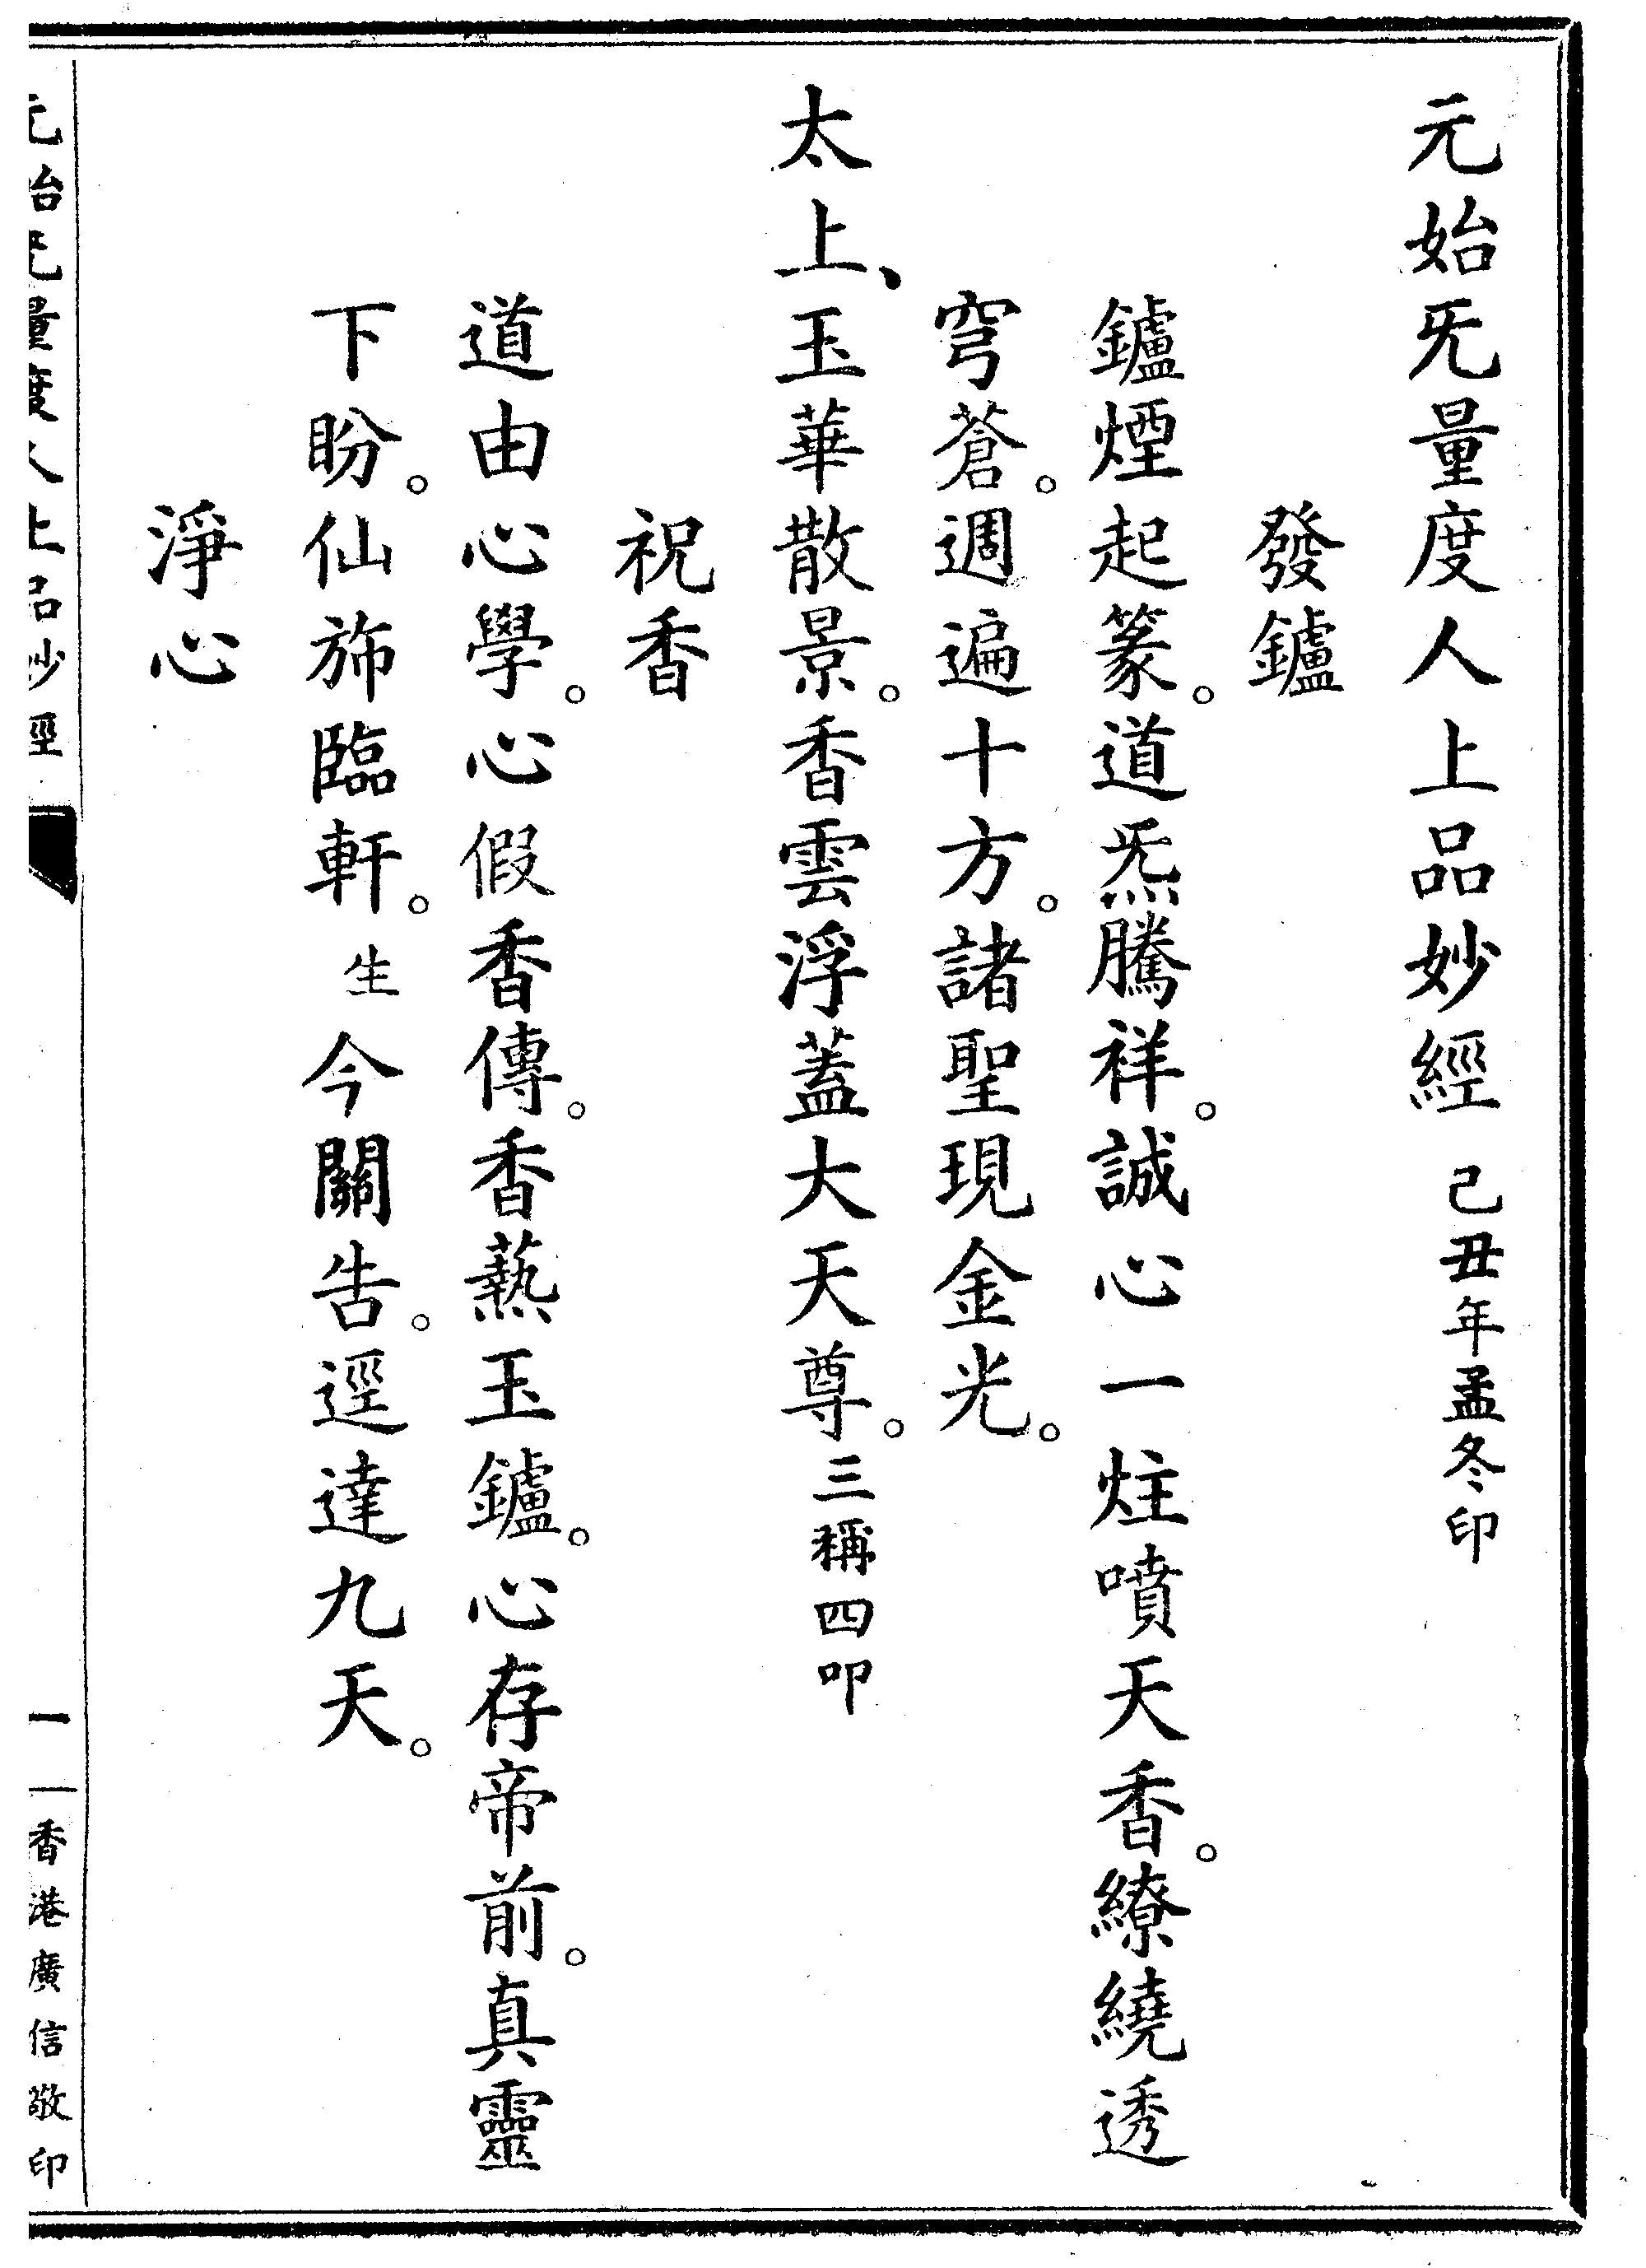 元始旡量度人上品妙經 己丑年孟冬印
發鑪
鑪煙起篆。道炁騰祥。誠心一炷噴天香。繚繞透
穹蒼。週遍十方。諸聖現金光。
太上、玉華散景。香雲浮蓋大天尊。三稱四叩
祝香
道由心學。心假香傳。香爇玉鑪。心存帝前。真靈
下盼。仙斾臨軒。生今關告。逕達九天。
淨心
元始旡量度人上品妙經 一 香港廣信敬印